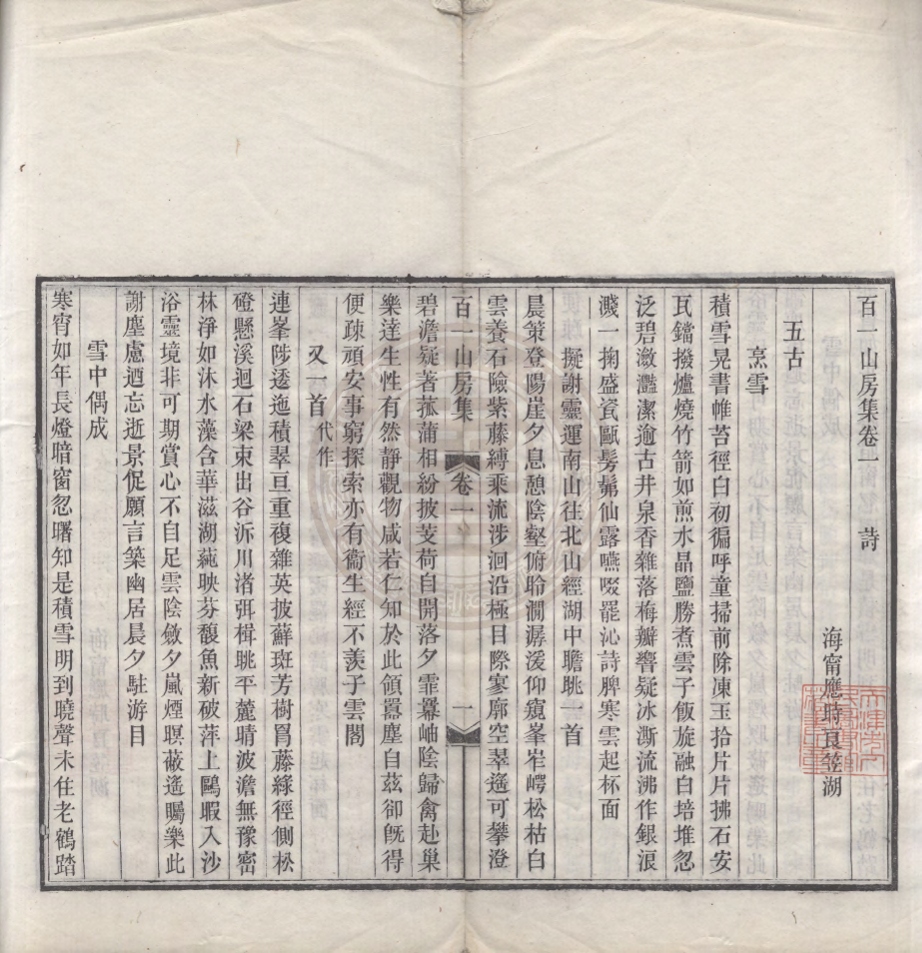 百一山房集卷一　詩
海甯應時良笠湖
五古
烹雪
積雪晃書帷苔徑白初徧呼童掃前除凍玉拾片片拂石安
瓦鐺撥爐燒竹箭如煎水晶鹽勝煮雲子飯旋融白培堆忽
泛碧瀲灩潔逾古井泉香雜落梅瓣響疑冰澌流沸作銀浪
濺一掬盛瓷甌髣髴仙露嚥啜罷沁詩脾寒雲起杯面
擬謝靈運南山往北山經湖中瞻眺一首
晨策登陽崖夕息憩陰壑俯聆澗潺湲仰窺峯峇崿松枯白
雲養石險紫藤縛乘流涉洄沿極目際寥廓空翠遙可攀澄
百一山房集　卷一　一
碧澹疑著菰蒲相紛披芰荷自開落夕霏羃岫陰歸禽赴巢
樂達生性有然靜觀物咸若仁知於此領嚣塵自茲卻旣得
便疎頑安事窮探索亦有衞生經不羨子雲閣
又一首代作
連峯陟逶迤積翠亘重複雜英披蘚斑芳樹罥藤綠徑側松
磴懸溪迴石梁束出谷泝川渚弭楫眺平麓晴波澹無豫密
林淨如沐水藻含華滋湖蓴映芬馥魚新破萍上鷗暇入沙
浴靈境非可期賞心不自足雲陰斂夕嵐煙暝蔽遙矚樂此
謝塵慮迺忘逝景促願言築幽居晨夕駐游目
雪中偶成
寒宵如年長燈暗窗忽曙知是積雪明到曉聲未住老鶴踏